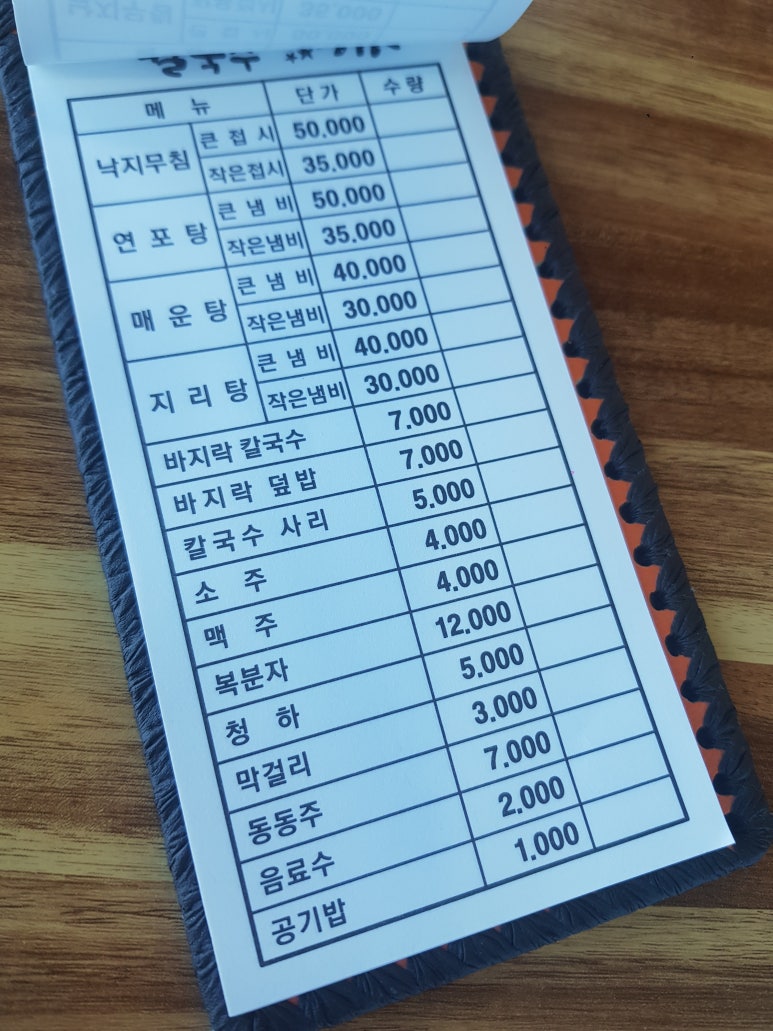 칼국수
메 뉴 단 가 수 량
낙지무침 큰 접 시 50.000
작은접시 35.000
연 포 탕 큰 냄 비 50.000
작은냄비 35.000
매 운 탕 큰 냄 비 40.000
작은냄비 30.000
지 리 탕 큰 냄 비 40.000
작은냄비 30.000
바지락 칼국수 7.000
바지락 덮밥 7.000
칼국수 사리 5.000
소 주 4.000
맥 주 4.000
복분자 12.000
청 하 5.000
막걸리 3.000
동동주 7.000
음료수 2.000
공기밥 1.000